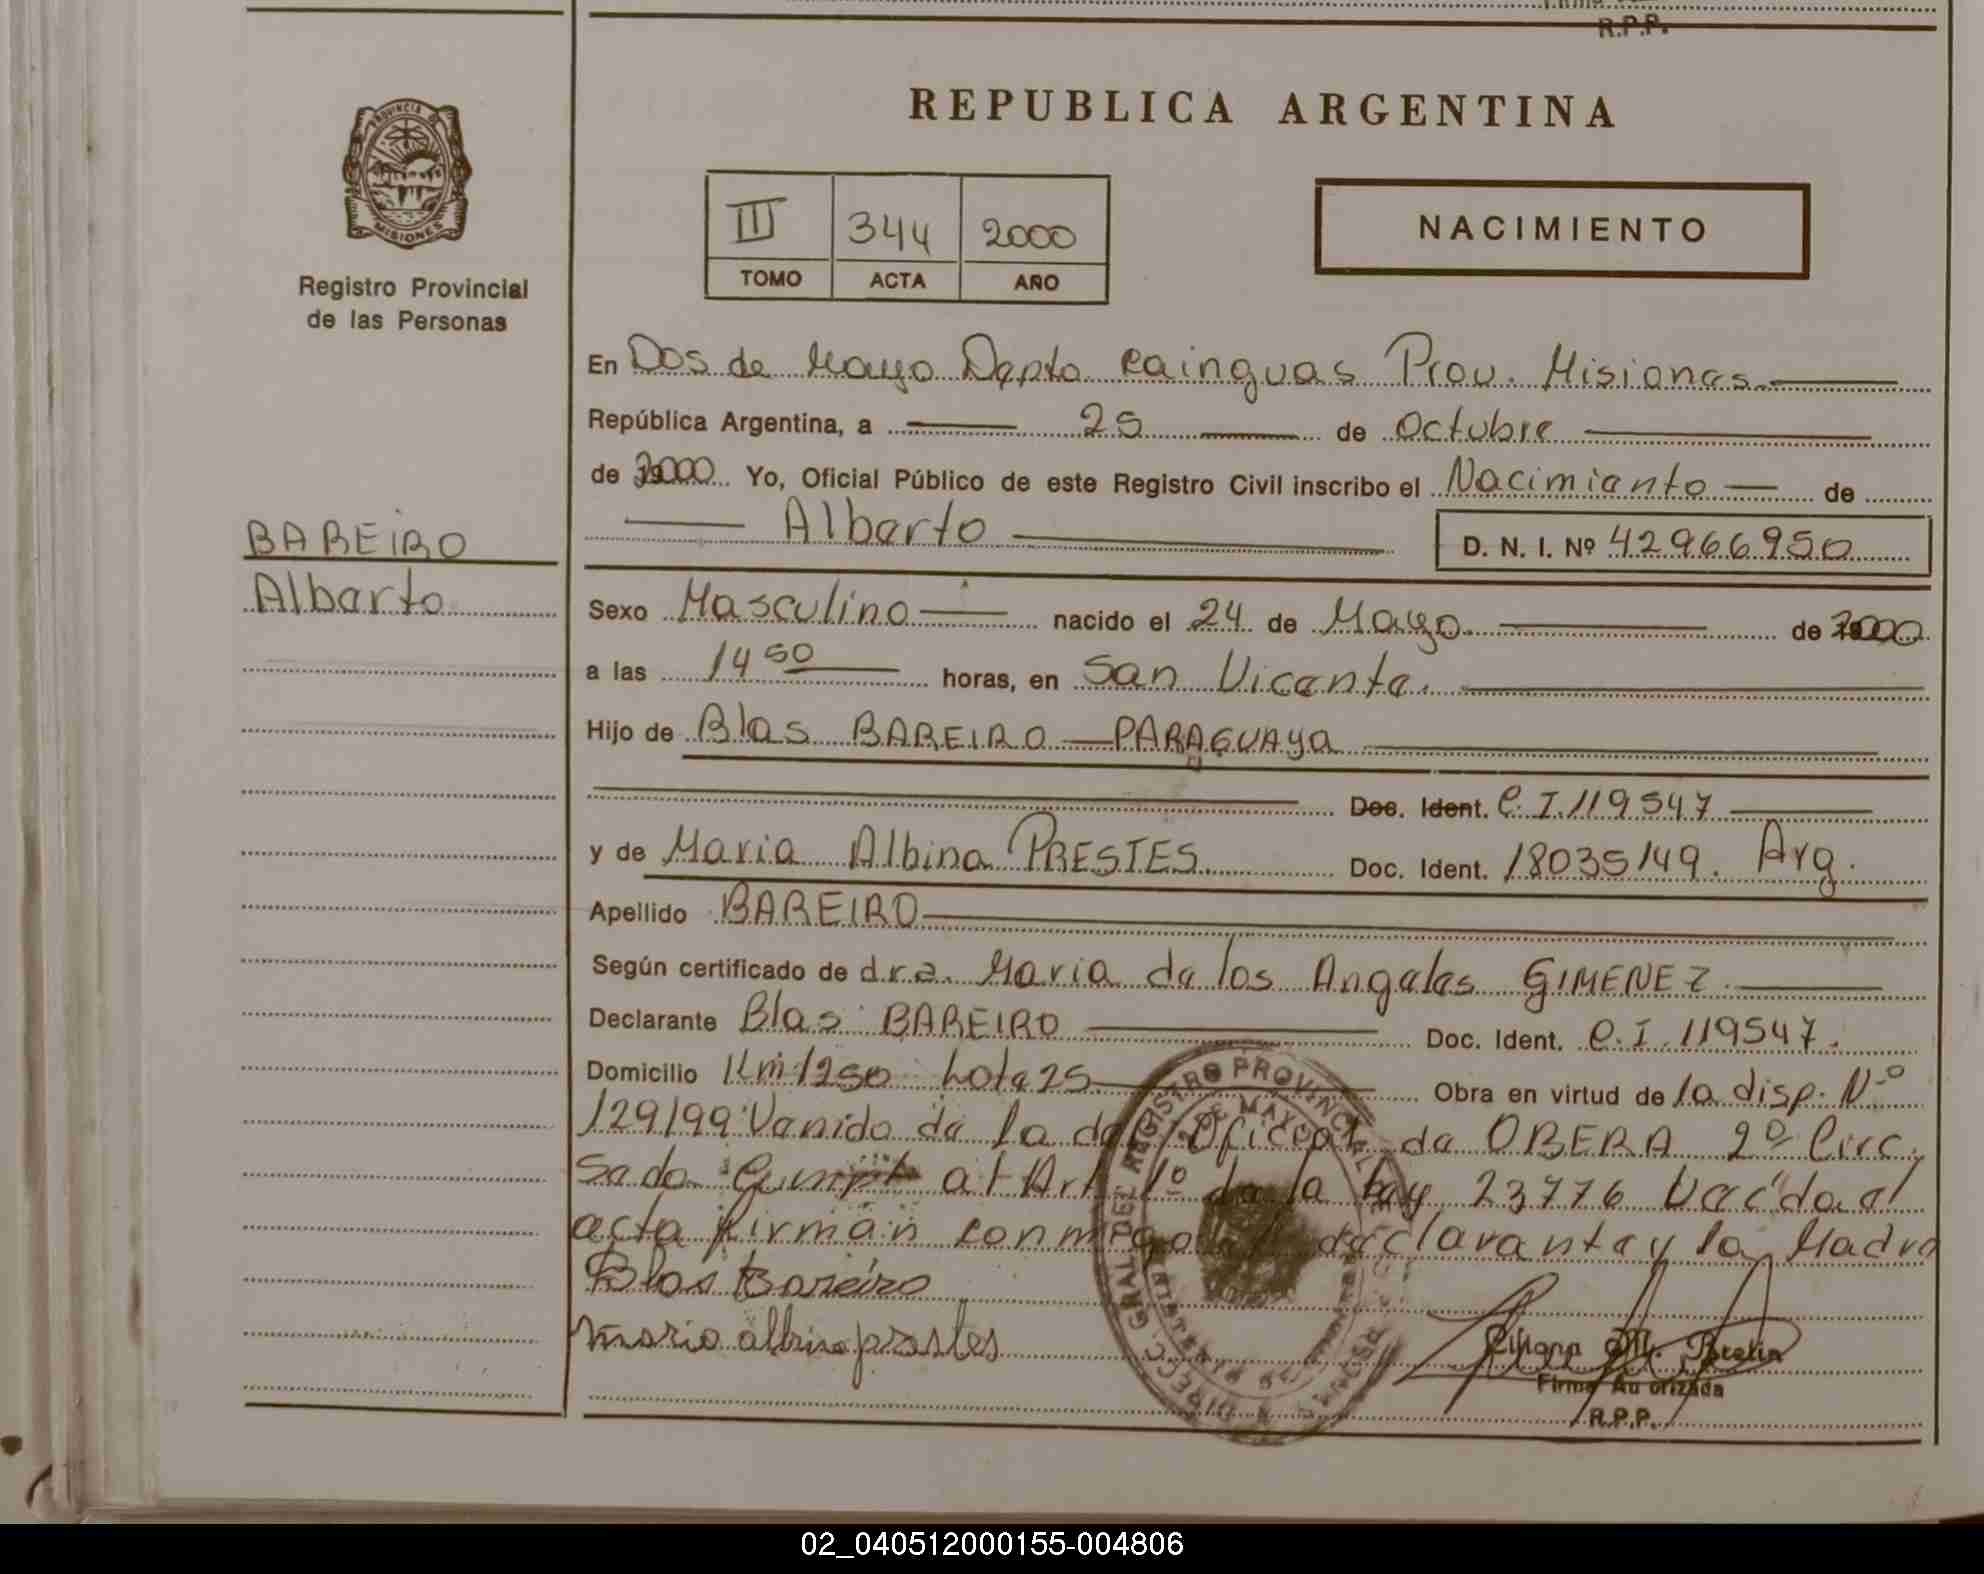 R.P.P.
PROVINCIA DE
MISIONES
Registro Provincial
de las Personas
REPUBLICA ARGENTINA
III 344 2000
TOMO ACTA AÑO
NACIMIENTO
En Dos de Mayo Depto Cainguas Prov. Misiones.
República Argentina, a 25 de Octubre
de 2000 Yo, Oficial Público de este Registro Civil inscribo el Nacimiento de
Alberto D. N. I. Nº 42966950
BAREIRO
Alberto
Sexo Masculino nacido el 24 de Mayo de 2000
a las 14 50 horas, en San Vicente.
Hijo de Blas BAREIRO — PARAGUAYa
Doc. Ident. C.I. 119547
y de Maria Albina PRESTES Doc. Ident. 18035149. Arg.
Apellido BAREIRO
Según certificado de d.r.a. Maria de los Angeles GIMENEZ
Declarante Blas BAREIRO Doc. Ident. C.I. 119547.
Domicilio Km 1250 Lote 25 Obra en virtud de la disp. Nº
129/99 Venido de la Oficial de OBERA 2º Circ.
Sede at Art 1º de la Ley 23776 al
acta firman conmigo declarante y la Madre
Blas Bareiro
maria albina prestes
Firma Autorizada
R.P.P.
02_040512000155-004806